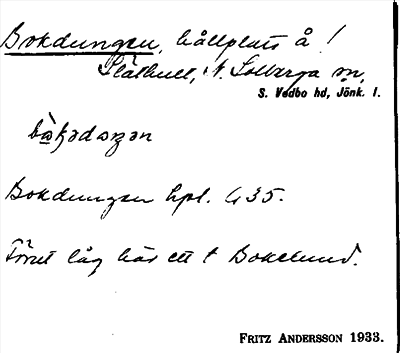 Bokdungen, hållplats å
Slätthult, N. Solberga sn,
S. Vedbo hd, Jönk. l.
Bokdungen hpl. G 35.
Förut låg här ett t Bokelund.
FRITZ ANDERSSON 1933.